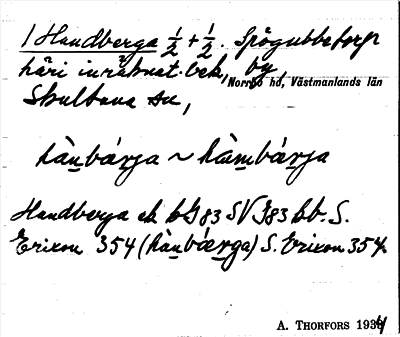 1 Handberga 1/2 + 1/2. Spögubbetorp
häri inräknat. bek, by
Norrbo hd, Västmanlands län
Skultuna sn,
hànbárja ~ hàmbárja
Handberga ek bG 83 SV J83 bb. S.
Erixon 354 (hànbærga) S. Erixon 354.
A. THORFORS 1934